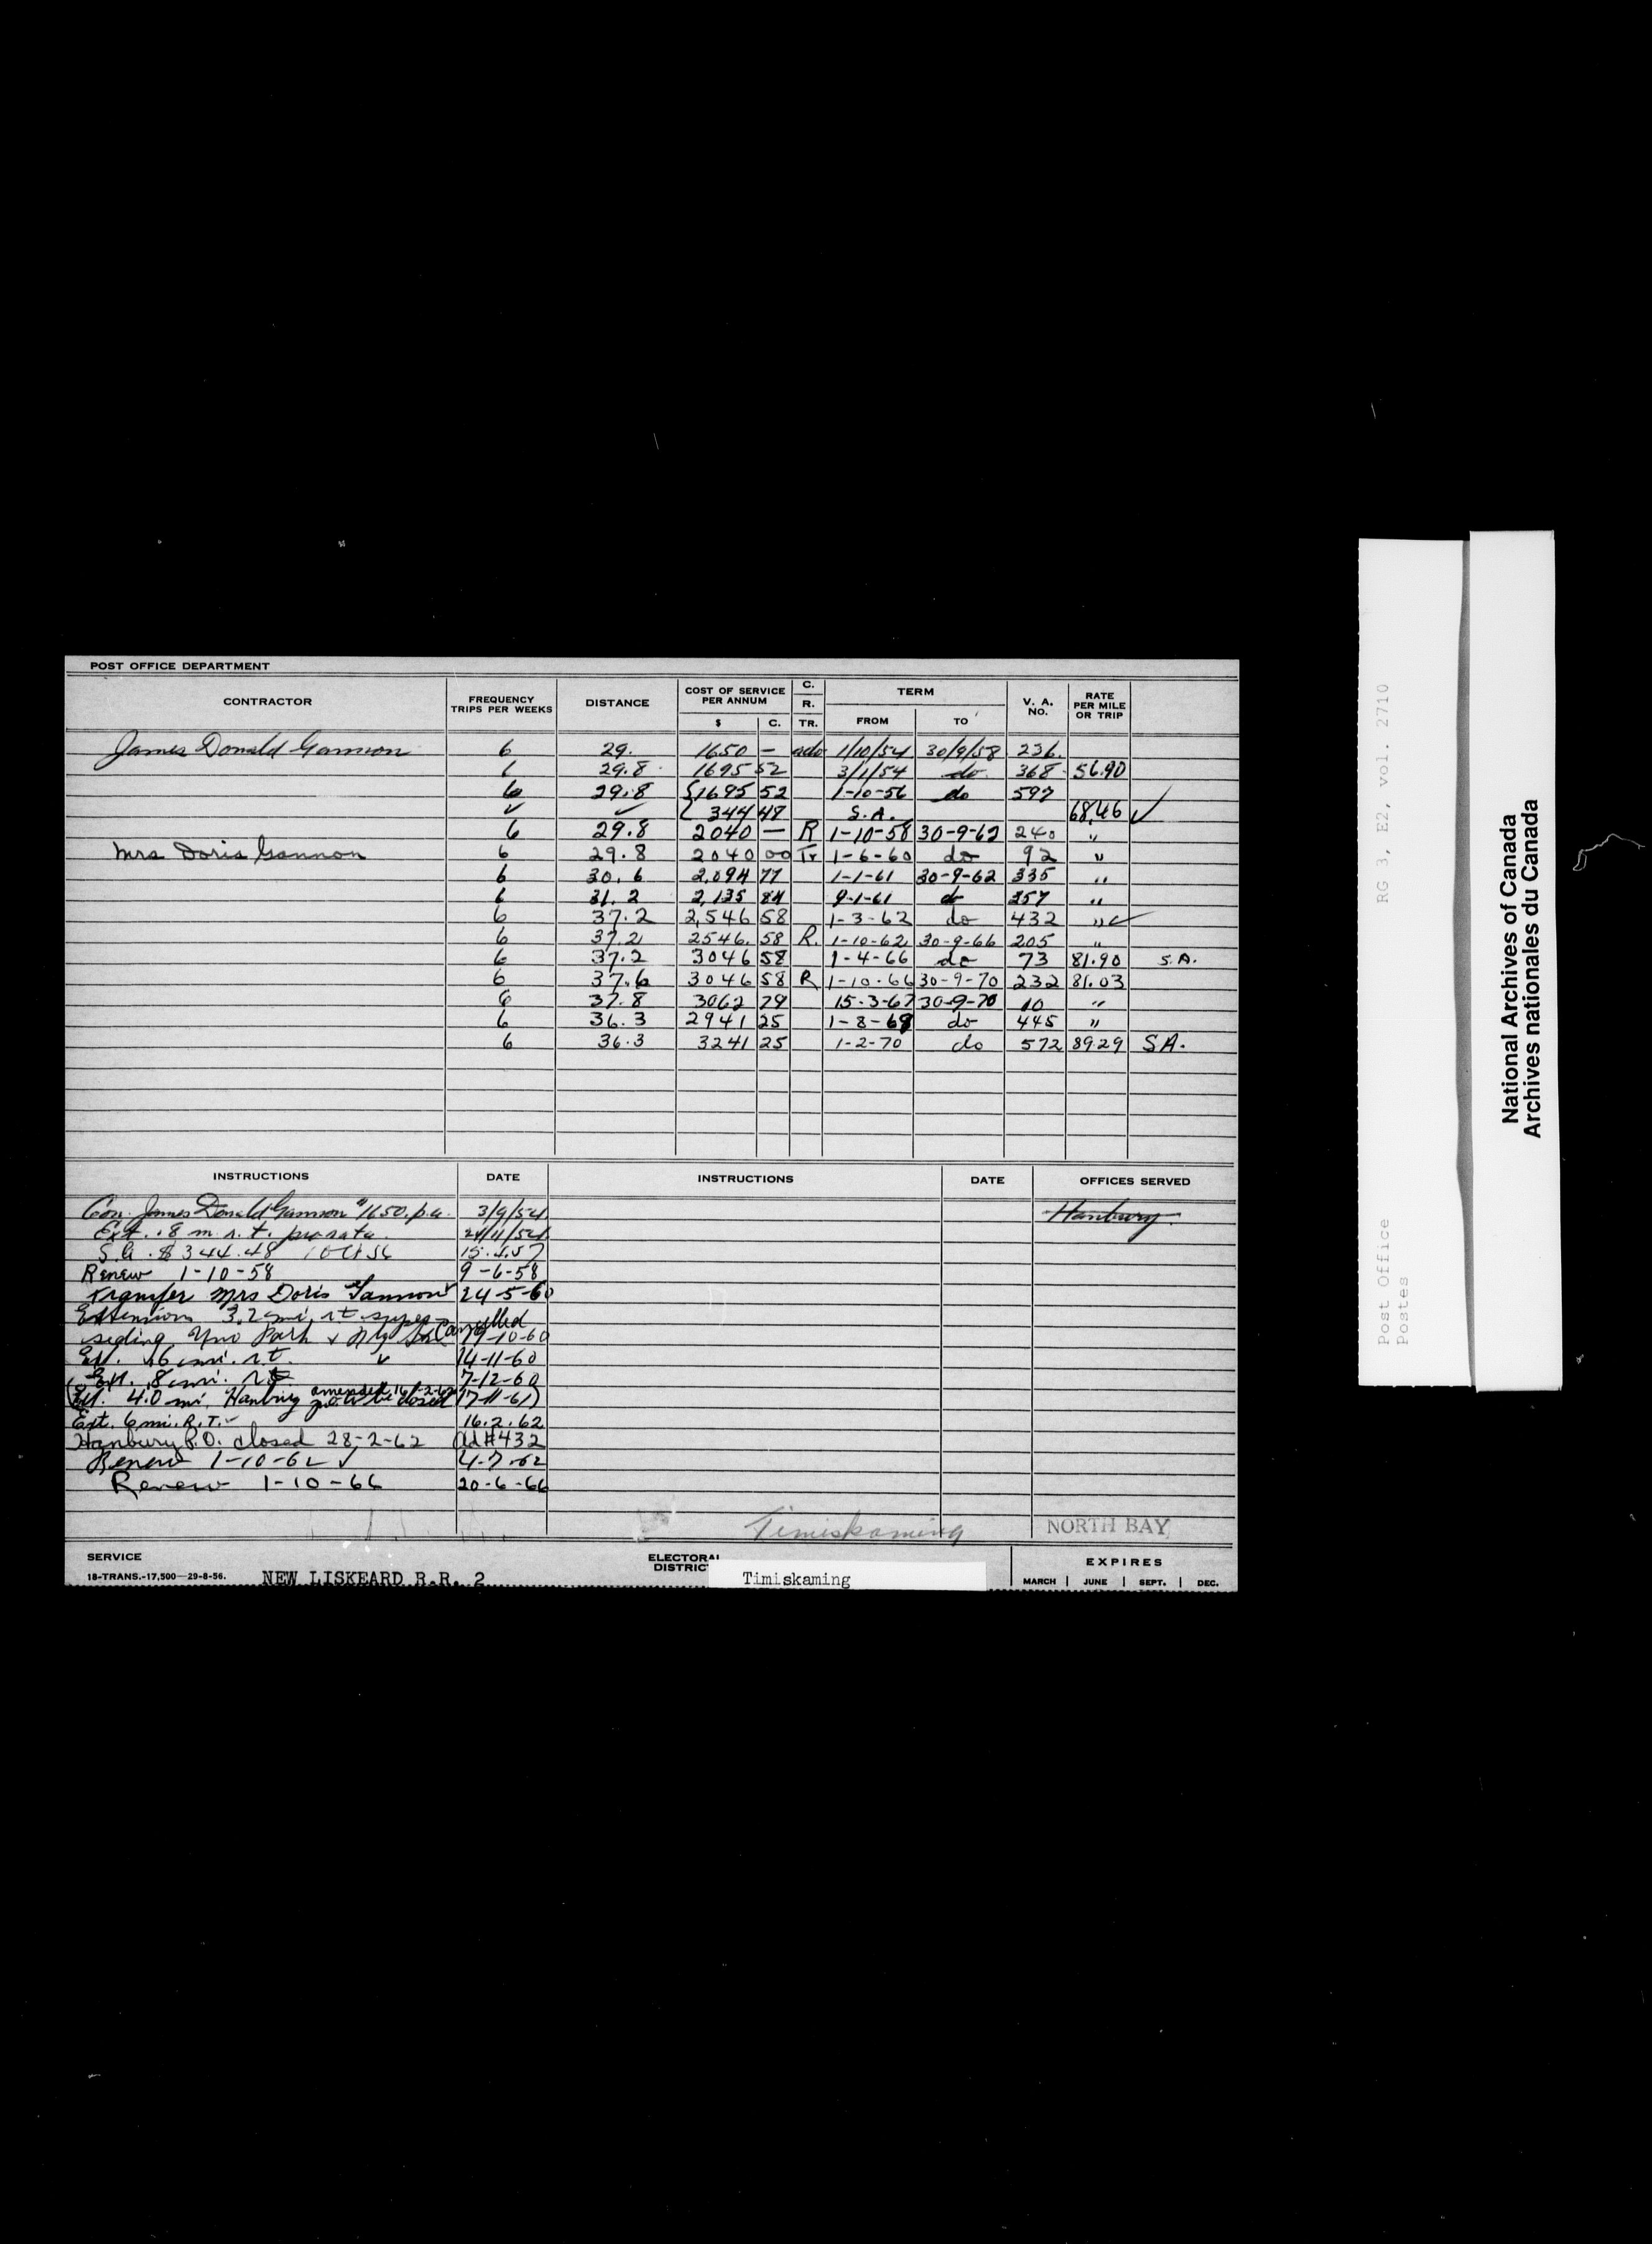 POST OFFICE DEPARTMENT
CONTRACTOR FREQUENCY TRIPS PER WEEKS DISTANCE COST OF SERVICE PER ANNUM $ C. C. R. TR. TERM FROM TO V. A. NO. RATE PER MILE OR TRIP
James Donald Gannon 6 29. 1650 — 1/10/54 30/9/58 236.
6 29.8 1695 52 3/1/54 do 368 56.90
6 29.8 1695 52 1-10-56 do 597
✓ ✓ 344 48 S.A. 68.46 ✓
6 29.8 2040 — R 1-10-58 30-9-62 240 "
Mrs Doris Gannon 6 29.8 2040 00 Tr 1-6-60 do 92 "
6 30.6 2,094 77 1-1-61 30-9-62 335 "
6 31.2 2,135 84 9-1-61 do 357 "
6 37.2 2,546 58 1-3-62 do 432 " ✓
6 37.2 2546. 58 R. 1-10-62 30-9-66 205 "
6 37.2 3046 58 1-4-66 do 73 81.90 S.A.
6 37.6 3046 58 R 1-10-66 30-9-70 232 81.03
6 37.8 3062 79 15-3-67 30-9-70 10 "
6 36.3 2941 25 1-8-69 do 445 "
6 36.3 3241 25 1-2-70 do 572 89.29 S.A.
INSTRUCTIONS DATE INSTRUCTIONS DATE OFFICES SERVED
Con. James Donald Gannon $1650. p.a. 3/9/54 Hanbury
Ext. .8 m. r.t. pro rata. 24/11/54
S.A. $344.48 1 Oct 56 15.1.57
Renew 1-10-58 9-6-58
Transfer Mrs Doris Gannon 24-5-60
Extension 3.2 mi. rt. Cancelled
19-10-60
Ext. .6 mi. r.t. ✓ 14-11-60
Ext. .8 mi. rt. 7-12-60
(Ext. 4.0 mi. Hanbury p.o. to be closed amended 16-2-62 17-11-61)
Ext. 6 mi. R.T. 16.2.62
Hanbury P.O. closed 28-2-62 Ad #432
Renew 1-10-62 ✓ 4-7-62
Renew 1-10-66 20-6-66
Timiskaming NORTH BAY
SERVICE
18-TRANS.-17,500—29-8-56. NEW LISKEARD R.R. 2 ELECTORAL DISTRICT Timiskaming
EXPIRES
MARCH | JUNE | SEPT. | DEC.
RG 3, E2, vol. 2710
Post Office
Postes
National Archives of Canada
Archives nationales du Canada